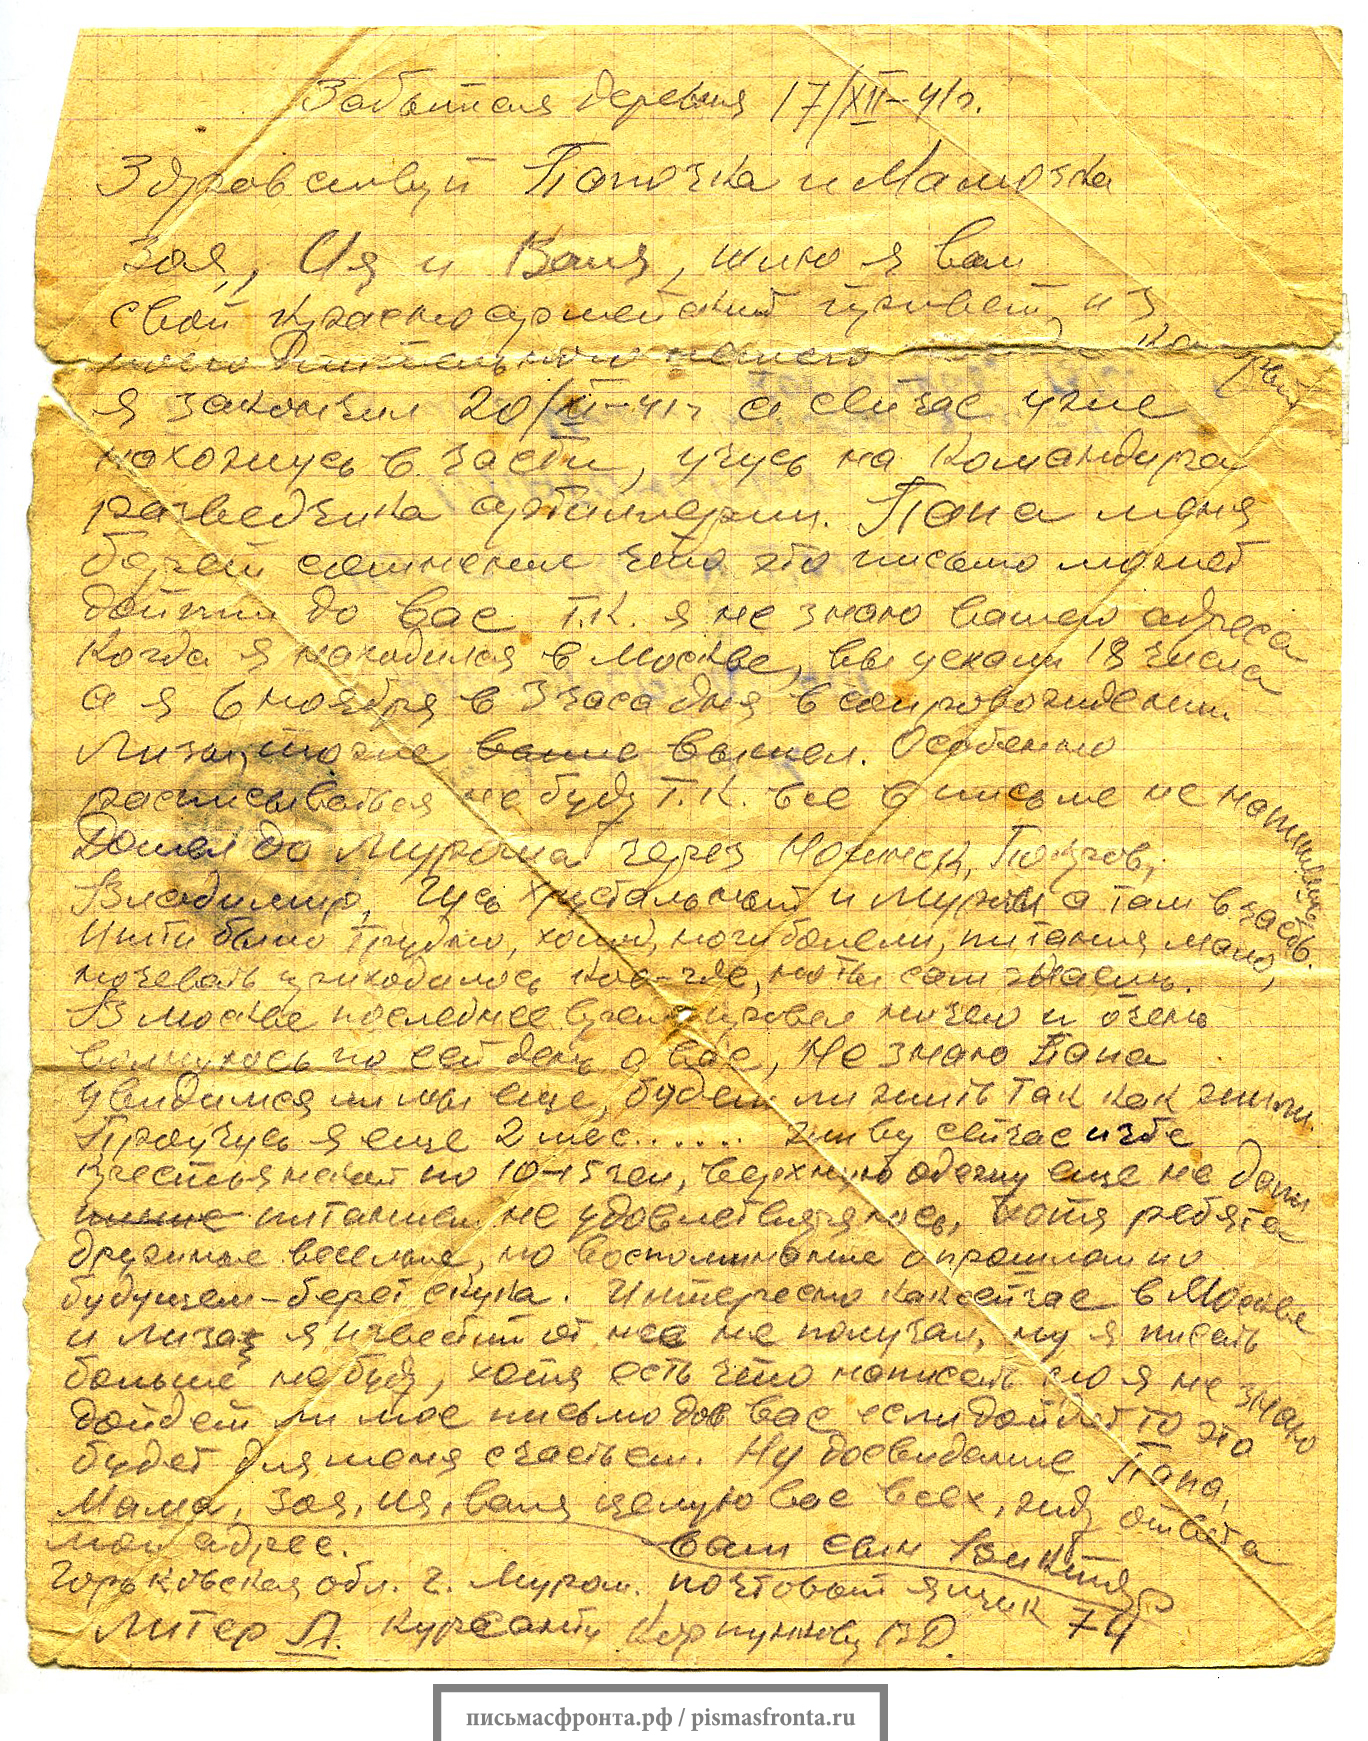 Забытая деревня 17/XII-41г.
Здравствуй Папочка и Мамочка
Зоя, Ия и Ваня, шлю я вам
свой красноармейский привет, из
моего длительного пешего
я закончил 20/XI-41г а сейчас уже
нахожусь в части, учусь на командира
разведчика артиллерии. Папа меня
берет сомнение что это письмо может
дойти до вас т.к. я не знаю вашего адреса
Когда я находился в Москве, вы уехали 18 числа
а я 6 ноября в 3 часа дня в сопровождении
Лизы, тоже выше вышел. Особенно
расписываться не буду т.к. все в письме не напишешь.
Дошел до Мурома через Ногинск, Покров,
Владимир, Гусь Хрустальный и Муром а там в часть.
Итти было трудно, холод, ноги болели, питания мало,
ночевать приходилось кое-где, но ты сам знаешь.
В Москве последнее время провел ничего и очень
волнуюсь по сей день о вас, не знаю Папа
увидимся ли мы еще, будем ли жить так как жили.
Проучусь я еще 2 мес...... живу сейчас избе
крестьянской по 10-15 чел, верхнюю одежу еще не дали
питанием не удовлетворяюсь, хотя ребята
дружные веселые, но воспоминание о прошлом но
будущем - берет скука. Интересно как сейчас в Москве
и Лиза, я известий от нее не получал, ну я писать
больше не буду, хотя есть что написать но я не знаю
дойдет ли мое письмо до вас если дойдет то это
будет для меня счастьем. Ну досвидание Папа,
Мама, Зоя, Ия, Ваня целую вас всех, жду ответа
ваш сын Виктор
мой адрес.
Горьковская обл. г. Муром. почтовый ящик 74
Литер Л. Курсанту Коршункову В.Д.
письмасфронта.рф / pismasfronta.ru